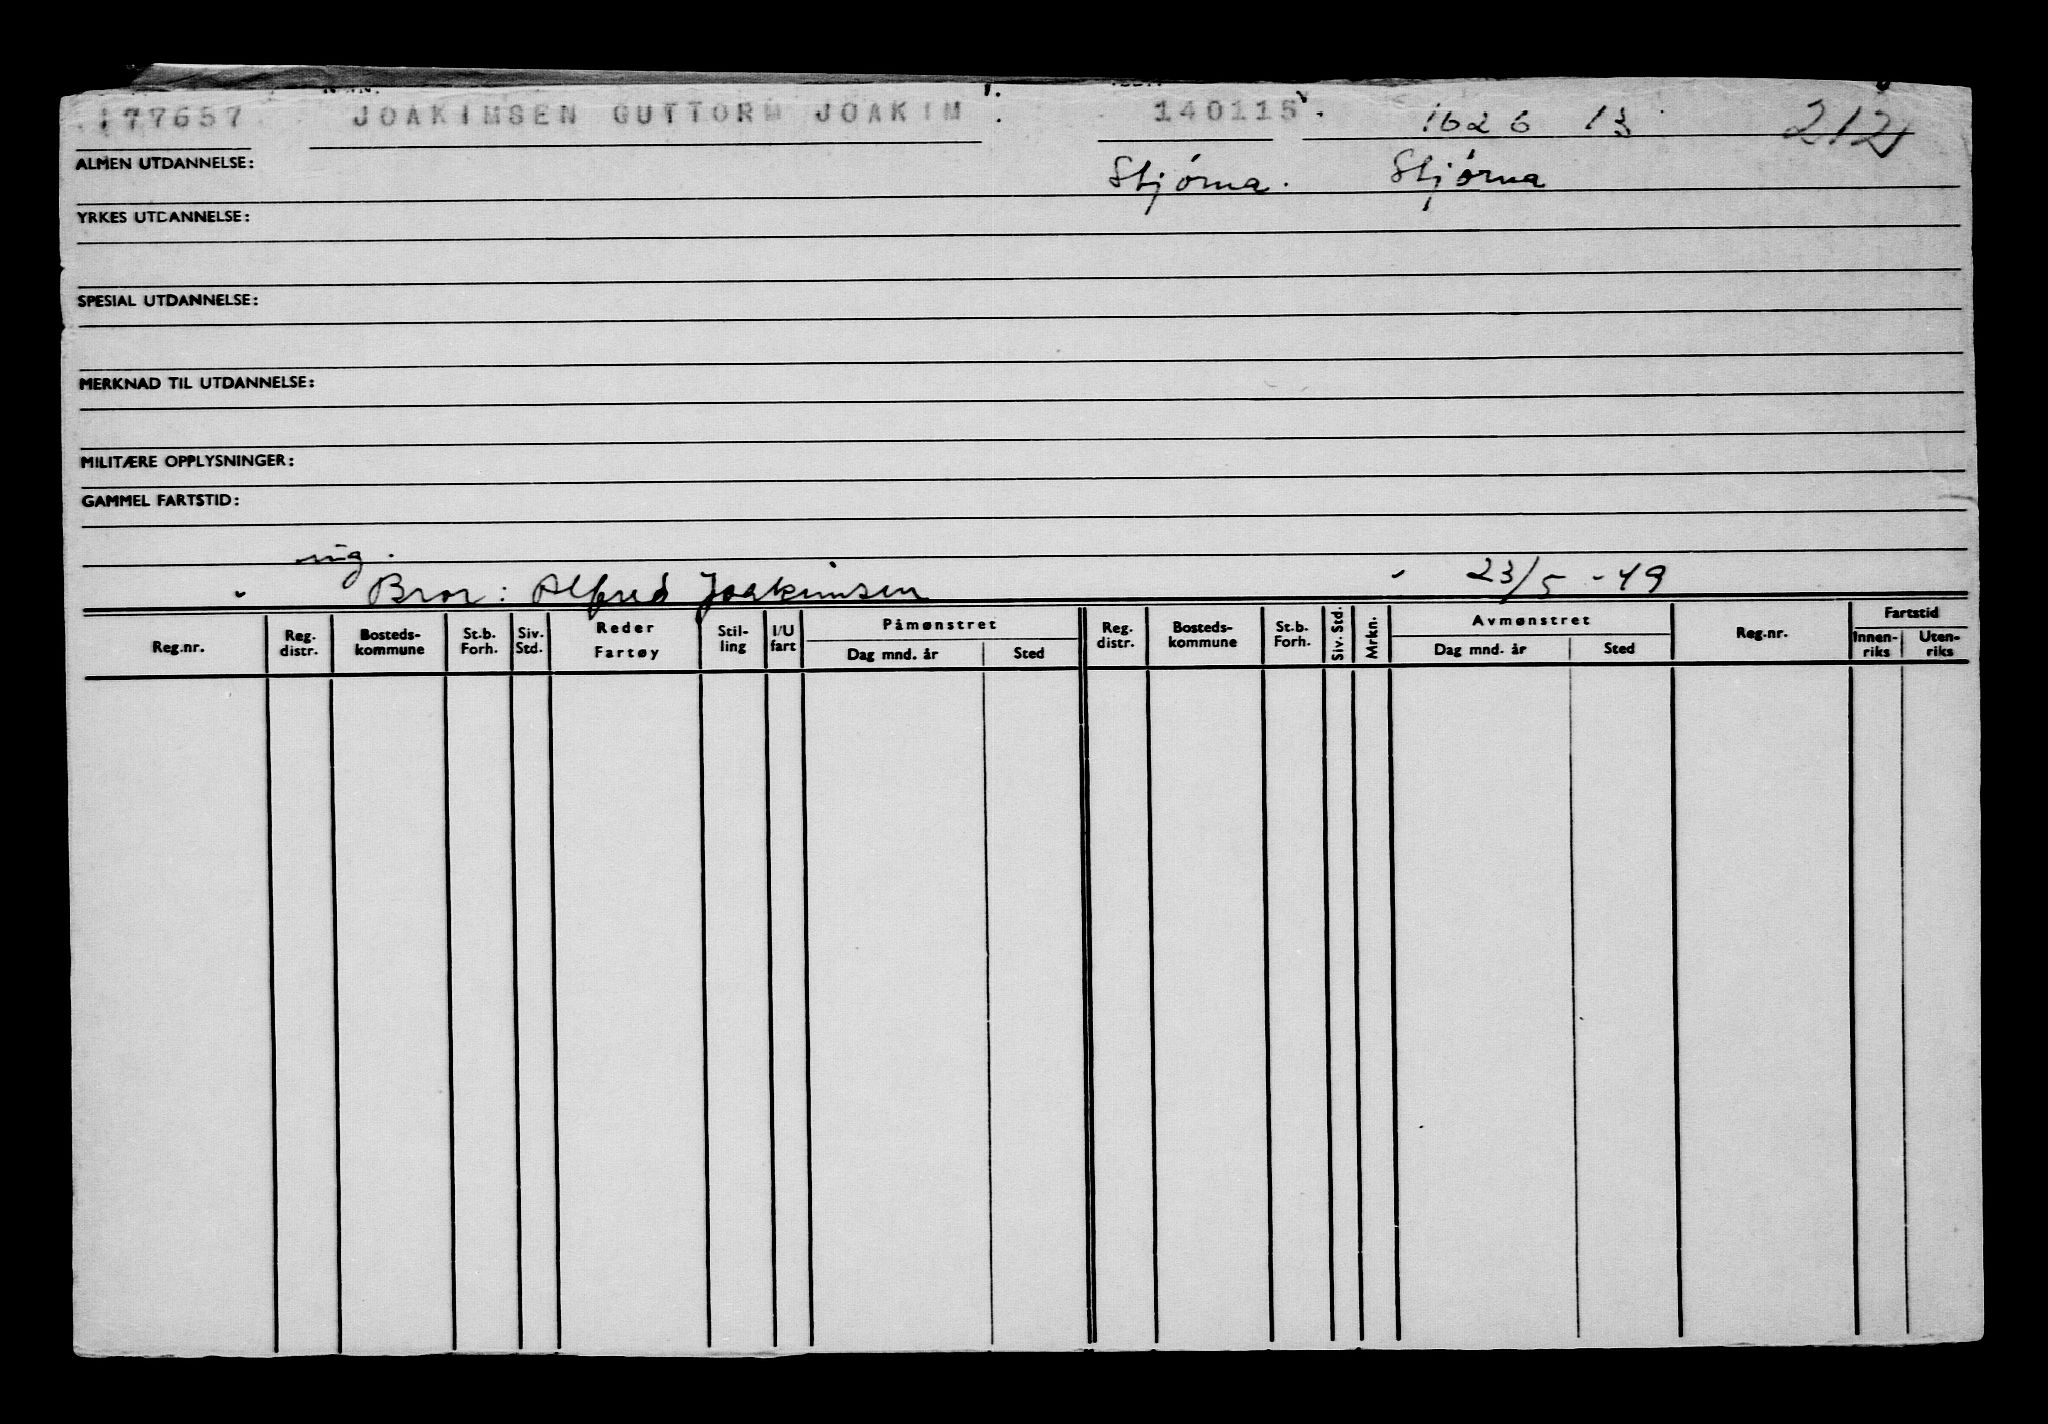 177657 JOAKIMSEN GUTTORM JOAKIM. 140115. 1626 13 212
ALMEN UTDANNELSE: Stjørna. Stjørna
YRKES UTDANNELSE:
SPESIAL UTDANNELSE:
MERKNAD TIL UTDANNELSE:
MILITÆRE OPPLYSNINGER:
GAMMEL FARTSTID:
ug.
Bror: Alfred Joakimsen - 23/5 - 49
Reg.nr. Reg. distr. Bosteds-kommune St.b. Forh. Siv. Std. Reder Fartøy Stil-ling I/U fart Påmønstret Dag mnd. år Sted Reg. distr. Bosteds-kommune St.b. Forh. Siv. Std. Mrkn. Avmønstret Dag mnd. år Sted Reg.nr. Fartstid Innen-riks Uten-riks